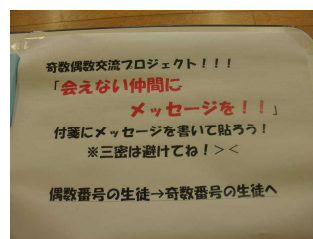 奇数偶数交流プロジェクト！！！
「会えない仲間に
メッセージを！！」
付箋にメッセージを書いて貼ろう！
※三密は避けてね！＞＜
偶数番号の生徒→奇数番号の生徒へ